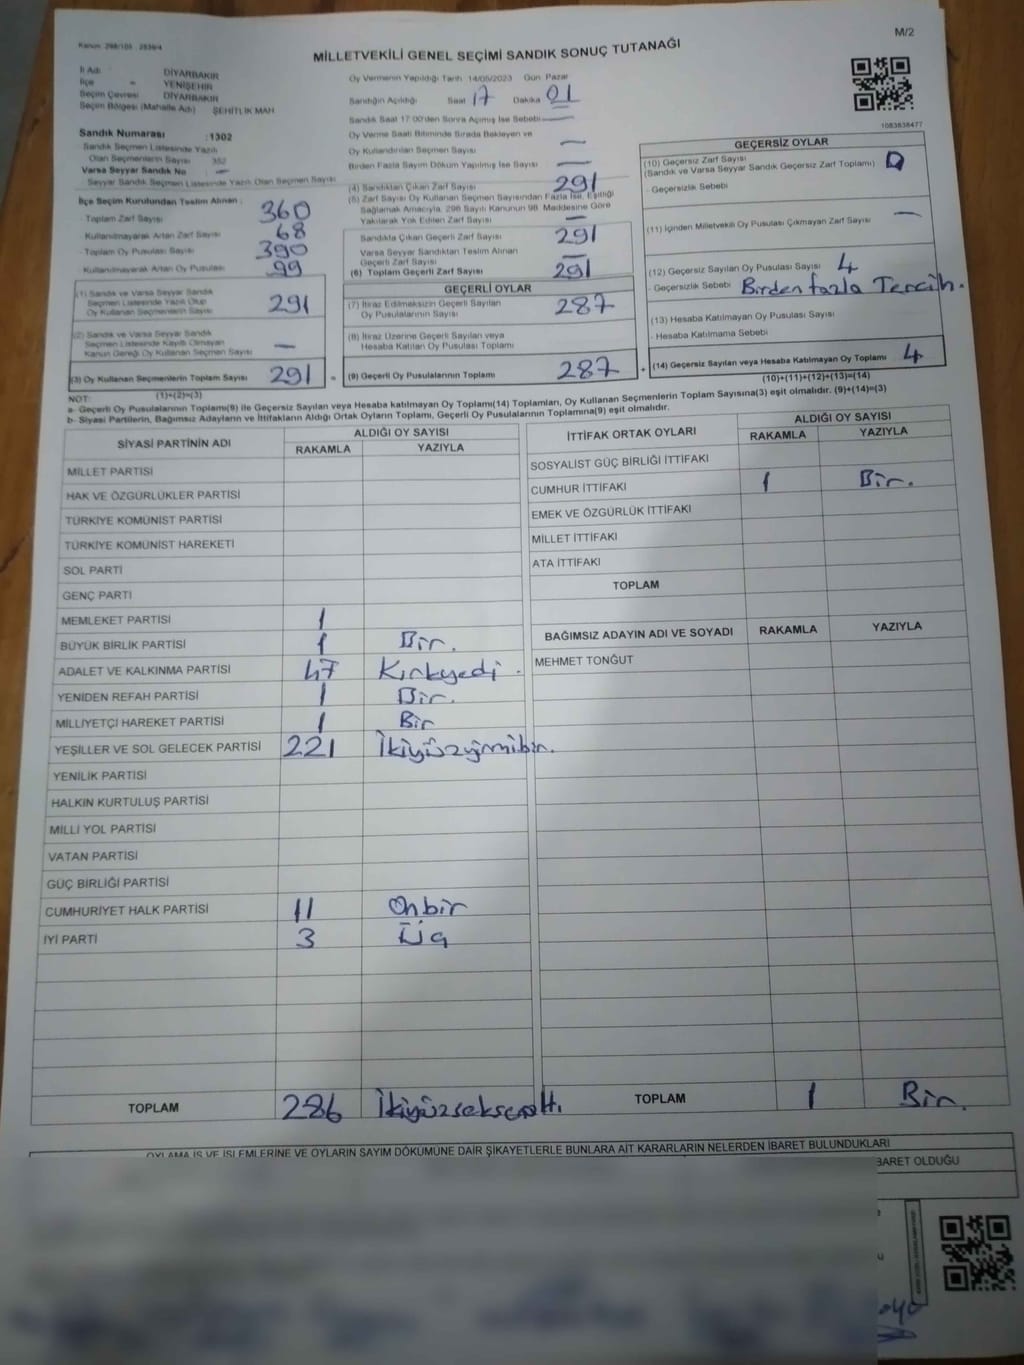 Kanun: 298/105 , 2839/4
M/2
MİLLETVEKİLİ GENEL SEÇİMİ SANDIK SONUÇ TUTANAĞI
İl Adı : DİYARBAKIR
İlçe = YENİŞEHİR
Seçim Çevresi DİYARBAKIR
Seçim Bölgesi (Mahalle Adı) ŞEHİTLİK MAH
Sandık Numarası :1302
Sandık Seçmen Listesinde Yazılı
Olan Seçmenlerin Sayısı 352
Varsa Seyyar Sandık No —
Seyyar Sandık Seçmen Listesinde Yazılı Olan Seçmen Sayısı
İlçe Seçim Kurulundan Teslim Alınan :
- Toplam Zarf Sayısı 360
Kullanılmayarak Artan Zarf Sayısı 68
- Toplam Oy Pusulası Sayısı 390
Kullanılmayarak Artan Oy Pusulası 99
(1) Sandık ve Varsa Seyyar Sandık
Seçmen Listesinde Yazılı Olup
Oy Kullanan Seçmenlerin Sayısı 291
(2) Sandık ve Varsa Seyyar Sandık
Seçmen Listesinde Kayıtlı Olmayan
Kanun Gereği Oy Kullanan Seçmen Sayısı —
(3) Oy Kullanan Seçmenlerin Toplam Sayısı 291
(1)+(2)=(3)
Oy Vermenin Yapıldığı Tarih 14/05/2023 Gün: Pazar
Sandığın Açıldığı Saat 17 Dakika 01
Sandık Saat 17:00'den Sonra Açılmış İse Sebebi —
Oy Verme Saati Bitiminde Sırada Bekleyen ve
Oy Kullandırılan Seçmen Sayısı —
Birden Fazla Sayım Döküm Yapılmış İse Sayısı —
(4) Sandıktan Çıkan Zarf Sayısı 291
(5) Zarf Sayısı Oy Kullanan Seçmen Sayısından Fazla İse, Eşitliği
Sağlamak Amacıyla, 298 Sayılı Kanunun 98. Maddesine Göre
Yakılarak Yok Edilen Zarf Sayısı —
Sandıkta Çıkan Geçerli Zarf Sayısı 291
Varsa Seyyar Sandıktan Teslim Alınan
Geçerli Zarf Sayısı —
(6) Toplam Geçerli Zarf Sayısı 291
GEÇERLİ OYLAR
(7) İtiraz Edilmeksizin Geçerli Sayılan
Oy Pusulalarının Sayısı 287
(8) İtiraz Üzerine Geçerli Sayılan veya
Hesaba Katılan Oy Pusulası Toplamı
= (9) Geçerli Oy Pusulalarının Toplamı 287
1083838477
GEÇERSİZ OYLAR
(10) Geçersiz Zarf Sayısı
(Sandık ve Varsa Seyyar Sandık Geçersiz Zarf Toplamı)
- Geçersizlik Sebebi
(11) İçinden Milletvekili Oy Pusulası Çıkmayan Zarf Sayısı —
(12) Geçersiz Sayılan Oy Pusulası Sayısı 4
- Geçersizlik Sebebi Birden fazla Tercih.
(13) Hesaba Katılmayan Oy Pusulası Sayısı
- Hesaba Katılmama Sebebi
+ (14) Geçersiz Sayılan veya Hesaba Katılmayan Oy Toplamı 4
(10)+(11)+(12)+(13)=(14)
NOT:
a- Geçerli Oy Pusulalarının Toplamı(9) ile Geçersiz Sayılan veya Hesaba katılmayan Oy Toplamı(14) Toplamları, Oy Kullanan Seçmenlerin Toplam Sayısına(3) eşit olmalıdır. (9)+(14)=(3)
b- Siyasi Partilerin, Bağımsız Adayların ve İttifakların Aldığı Ortak Oyların Toplamı, Geçerli Oy Pusulalarının Toplamına(9) eşit olmalıdır.
SİYASİ PARTİNİN ADI
ALDIĞI OY SAYISI
RAKAMLA YAZIYLA
MİLLET PARTİSİ
HAK VE ÖZGÜRLÜKLER PARTİSİ
TÜRKİYE KOMÜNİST PARTİSİ
TÜRKİYE KOMÜNİST HAREKETİ
SOL PARTİ
GENÇ PARTİ
MEMLEKET PARTİSİ 1
BÜYÜK BİRLİK PARTİSİ 1 Bir.
ADALET VE KALKINMA PARTİSİ 47 Kırkyedi.
YENİDEN REFAH PARTİSİ 1 Bir.
MİLLİYETÇİ HAREKET PARTİSİ 1 Bir
YEŞİLLER VE SOL GELECEK PARTİSİ 221 İkiyüzyirmibir.
YENİLİK PARTİSİ
HALKIN KURTULUŞ PARTİSİ
MİLLİ YOL PARTİSİ
VATAN PARTİSİ
GÜÇ BİRLİĞİ PARTİSİ
CUMHURİYET HALK PARTİSİ 11 Onbir
İYİ PARTİ 3 Üç
TOPLAM 286 İkiyüzseksenaltı.
İTTİFAK ORTAK OYLARI
ALDIĞI OY SAYISI
RAKAMLA YAZIYLA
SOSYALİST GÜÇ BİRLİĞİ İTTİFAKI
CUMHUR İTTİFAKI 1 Bir.
EMEK VE ÖZGÜRLÜK İTTİFAKI
MİLLET İTTİFAKI
ATA İTTİFAKI
TOPLAM
BAĞIMSIZ ADAYIN ADI VE SOYADI RAKAMLA YAZIYLA
MEHMET TONĞUT
TOPLAM 1 Bir.
OYLAMA İŞ VE İŞLEMLERİNE VE OYLARIN SAYIM DÖKÜMÜNE DAİR ŞİKAYETLERLE BUNLARA AİT KARARLARIN NELERDEN İBARET BULUNDUKLARI
BARET OLDUĞU